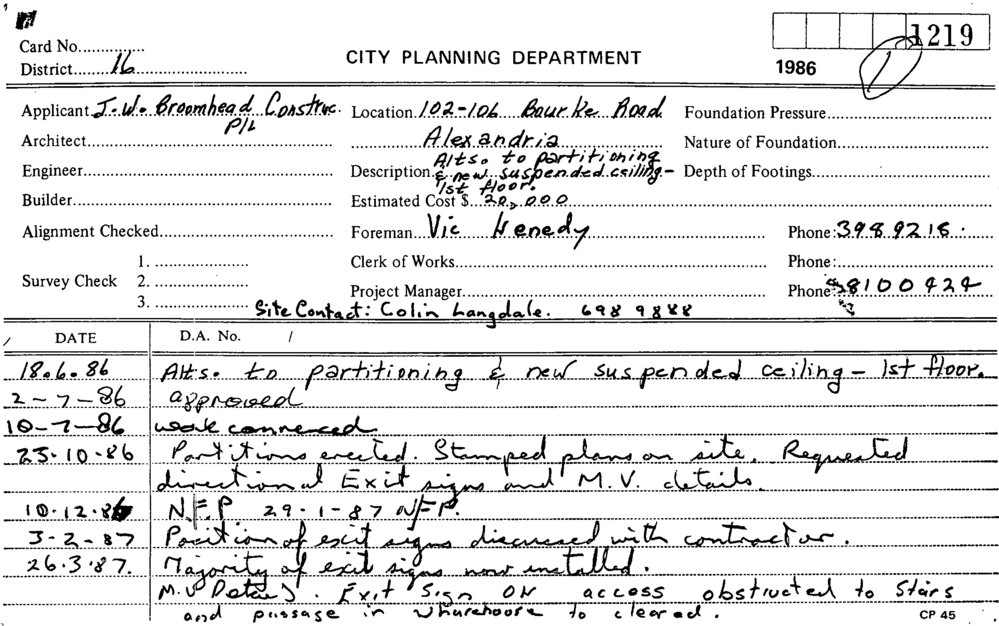 Card No..............
District........16
CITY PLANNING DEPARTMENT
1219
1986
1
Applicant J.W. Broomhead Construc. P/L
Location 102-106 Bourke Road
Alexandria
Foundation Pressure
Architect
Nature of Foundation
Engineer
Description Alts. to partitioning & new suspended ceiling - 1st floor.
Depth of Footings
Builder
Estimated Cost $ 20,000
Alignment Checked
Foreman Vic Henedy
Phone: 3989216
Survey Check 1.
2.
3.
Clerk of Works
Phone:
Project Manager
Phone: 8100424
Site Contact: Colin Langdale. 698 9888
DATE D.A. No. /
18.6.86 Alts. to partitioning & new suspended ceiling - 1st floor.
2-7-86 approved
10-7-86 work commenced
23-10-86 Partitions erected. Stamped plans on site. Requested
directional Exit signs and M.V. details.
10.12.86 N.F.P 29-1-87 NFP.
3-2-87 Position of exit signs discussed with contractor.
26.3.87. Majority of exit signs now installed.
M.V Details. Exit Sign ON access obstructed to Stairs
and passage in Wharehouse to cleared.
CP 45